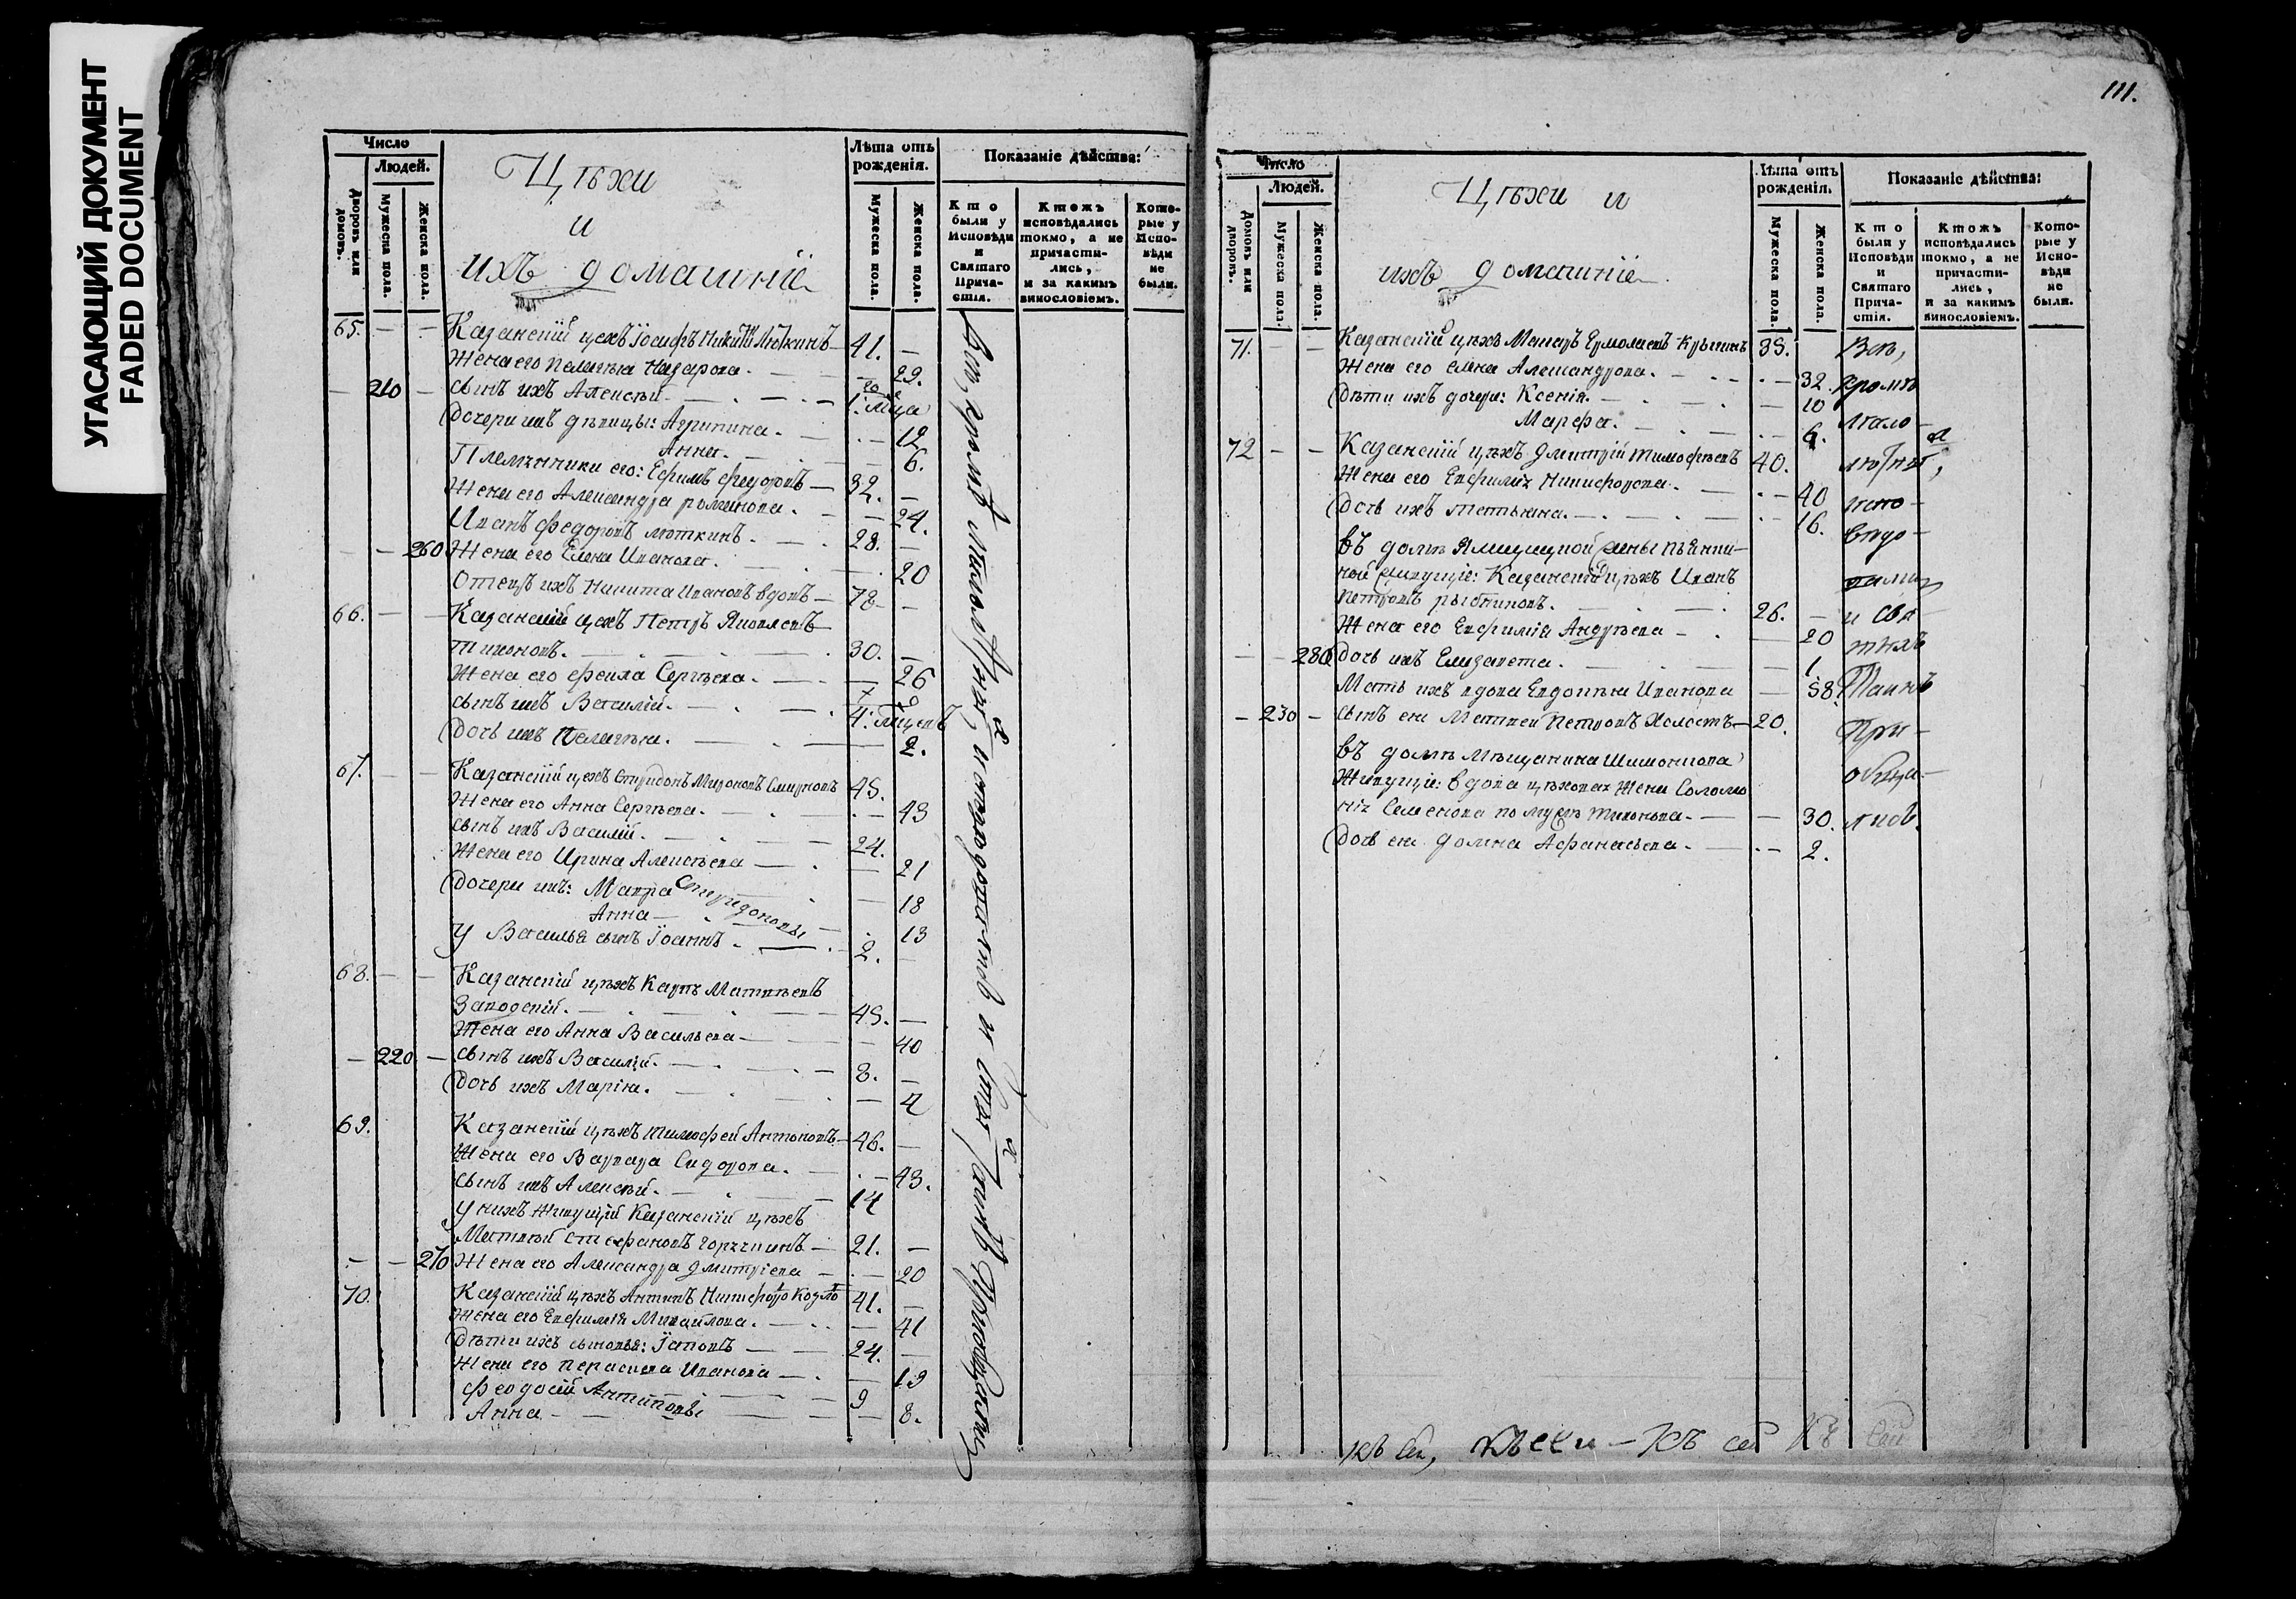 УГАСАЮЩИЙ ДОКУМЕНТ
FADED DOCUMENT
Число
Людей.
Дворовъ или домовъ.
Мужеска пола.
Женска пола.
Цѣхи
и
ихъ домашніе
Лѣта отъ рожденія.
Мужеска пола.
Женска пола.
Показаніе дѣйства:
Кто были у Исповѣди и Святаго Прича-стія.
Ктожъ исповѣдались токмо, а не причасти-лись, и за какимъ винословіемъ.
Кото-рые у Испо-вѣди не были.
65. — — Казанскій цехъ Іосифъ Никит Люткинъ — 41. —
Жена его Пелагѣя Назарова. — — 29.
— 210 — сынъ ихъ Алексѣй. — 1. мца
Дочери ихъ дѣвицы: Агрипина. — 12
Анна. — 6.
Племянники его: Ефимъ Федоровъ — 32. —
Жена его Александра романова. — — 24.
Иванъ Федоровъ люткинъ. — 28. —
— — 260 Жена его Елена Иванова. — 20
Отецъ ихъ Никита Ивановъ вдовъ — 78 —
66. — — Казанскій цехъ Петръ Яковлевъ
тихоновъ. — 30. —
Жена его Фекла Сергѣева. — — 26
сынъ ихъ Василій. — 4. мцевъ
Дочь ихъ Пелагѣя. — — 2.
67. — — Казанскій цехъ Спиридонъ Мироновъ Смирновъ 45.
Жена его Анна Сергѣева. — — 43
сынъ ихъ Василій. — 24.
Жена его Ирина Алексѣева — — 21
Дочери ихъ: Мавра Спиридоновы — 18
Анна — 13
У Василья сынъ Іоаннъ. — 2. —
68. — — Казанскій цѣхъ Карпъ Матвѣевъ
Заводскій. — 45. —
Жена его Анна Васильева — — 40
— 220 — сынъ ихъ Василій. — 8. —
Дочь ихъ Марія. — — 4
69. Казанскій цѣхъ тимофей Антоновъ — 46. —
Жена его Варвара Сидорова. — — 43.
сынъ ихъ Алексѣй. — 14
У нихъ живущій Казанскій цѣхъ
Матвѣй Стефановъ — 21. —
— — 270 Жена его Александра Дмитріева — — 20
70. Казанскій цѣхъ Антипъ 41. —
Жена его Евфимія Михайлова. — — 41
Дѣти ихъ сыновья: — 24. —
Жена его Параскева Иванова — — 19
Феодосій Антиповы — 9
Анна — — 8.
Всѣ, кромѣ малолѣтныхъ, исповѣдались и Святыхъ Таинъ Пріобщались
111.
Число
Людей.
Домовъ или дворовъ.
Мужеска пола.
Женска пола.
Цѣхи и
ихъ домашніе
Лѣта отъ рожденія.
Мужеска пола.
Женска пола.
Показаніе дѣйства:
Кто были у Исповѣди и Святаго Прича-стія.
Ктожъ исповѣдались токмо, а не причасти-лись, и за какимъ винословіемъ.
Кото-рые у Испо-вѣди не были.
71. — — Казанскій цѣхъ Макаръ Ермолаевъ 39.
Жена его елена Александрова. — — 32.
Дѣти ихъ дочери: Ксенія. — — 10
Марфа. — — 6.
72 — — Казанскій цѣхъ Дмитрій тимофѣевъ 40.
Жена его Евфимія Никифорова. — — 40
Дочь ихъ татьяна. — — 16.
Въ домѣ Ямщицкой жены
живущіе: Казанскій цѣхъ Иванъ
Петровъ рыбниковъ. — 26. —
Жена его Евфимія Андрѣева — — 20
— — 280 Дочь ихъ Елизавета. — — 1
Мать ихъ вдова Евдокѣя Иванова — 58.
— 230 — сынъ ея Матвей Петровъ Холостъ — 20.
Въ домѣ мѣщанина
живущіе: вдова цѣховая жена Соломо
нія Семенова по мужѣ тихонова — — 30.
Дочь ея домна Афанасьева. — — 2.
Всѣ,
кромѣ
мало-
лѣтных,
испо-
вѣдо-
вались
и Свя-
тыхъ
Таинъ
При-
обща-
лись.
къ сей